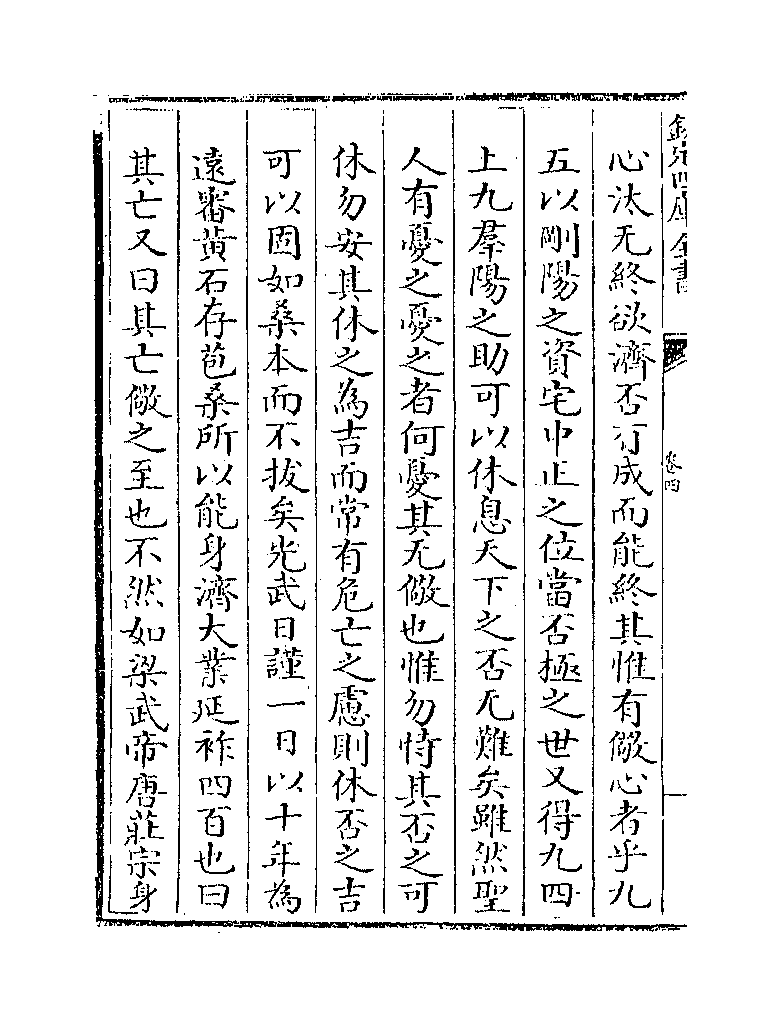 欽定四庫全書
卷四
心汰无終欲濟否有成而能終其惟有儆心者乎九
五以剛陽之資宅中正之位當否極之世又得九四
上九羣陽之助可以休息天下之否无難矣雖然聖
人有憂之憂之者何憂其无儆也惟勿恃其否之可
休勿安其休之為吉而常有危亡之慮則休否之吉
可以固如桑本而不拔矣光武日謹一日以十年為
遠審黃石存苞桑所以能身濟大業延祚四百也曰
其亡又曰其亡儆之至也不然如梁武帝唐莊宗身